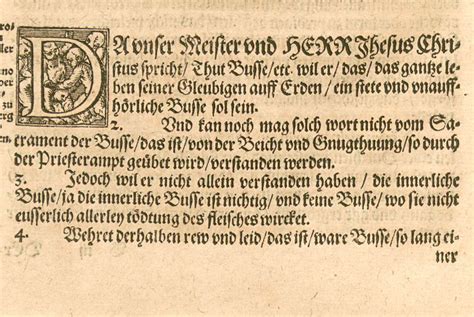 DA vnser Meister vnd HERR Jhesus Chri-
stus spricht / Thut Busse / etc. wil er / das / das gantze le-
ben seiner Gleubigen auff Erden / ein stete vnd vnauff-
hörliche Busse sol sein.
2. Vnd kan noch mag solch wort nicht vom Sa-
crament der Busse / das ist / von der Beicht vnd Gnugthuung / so durch
der Priesterampt geübet wird / verstanden werden.
3. Jedoch wil er nicht allein verstanden haben / die innerliche
Busse / ja die innerliche Busse ist nichtig / vnd keine Busse / wo sie nicht
eusserlich allerley tödtung des fleisches wircket.
4 Wehret derhalben rew vnd leid / das ist / ware Busse / so lang ei-
ner